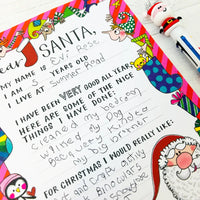 Dear SANTA,
MY NAME IS Evi Rose
I AM 5 YEARS OLD
I LIVE AT Summer Road
I HAVE BEEN VERY GOOD ALL YEAR
HERE ARE SOME OF THE NICE
THINGS I HAVE DONE:
cleaned my bedroom
Walked my Dog
Been Very Kind to
my big Brother
FOR CHRISTMAS I WOULD REALLY LIKE:
Art and Craft
Binoculars